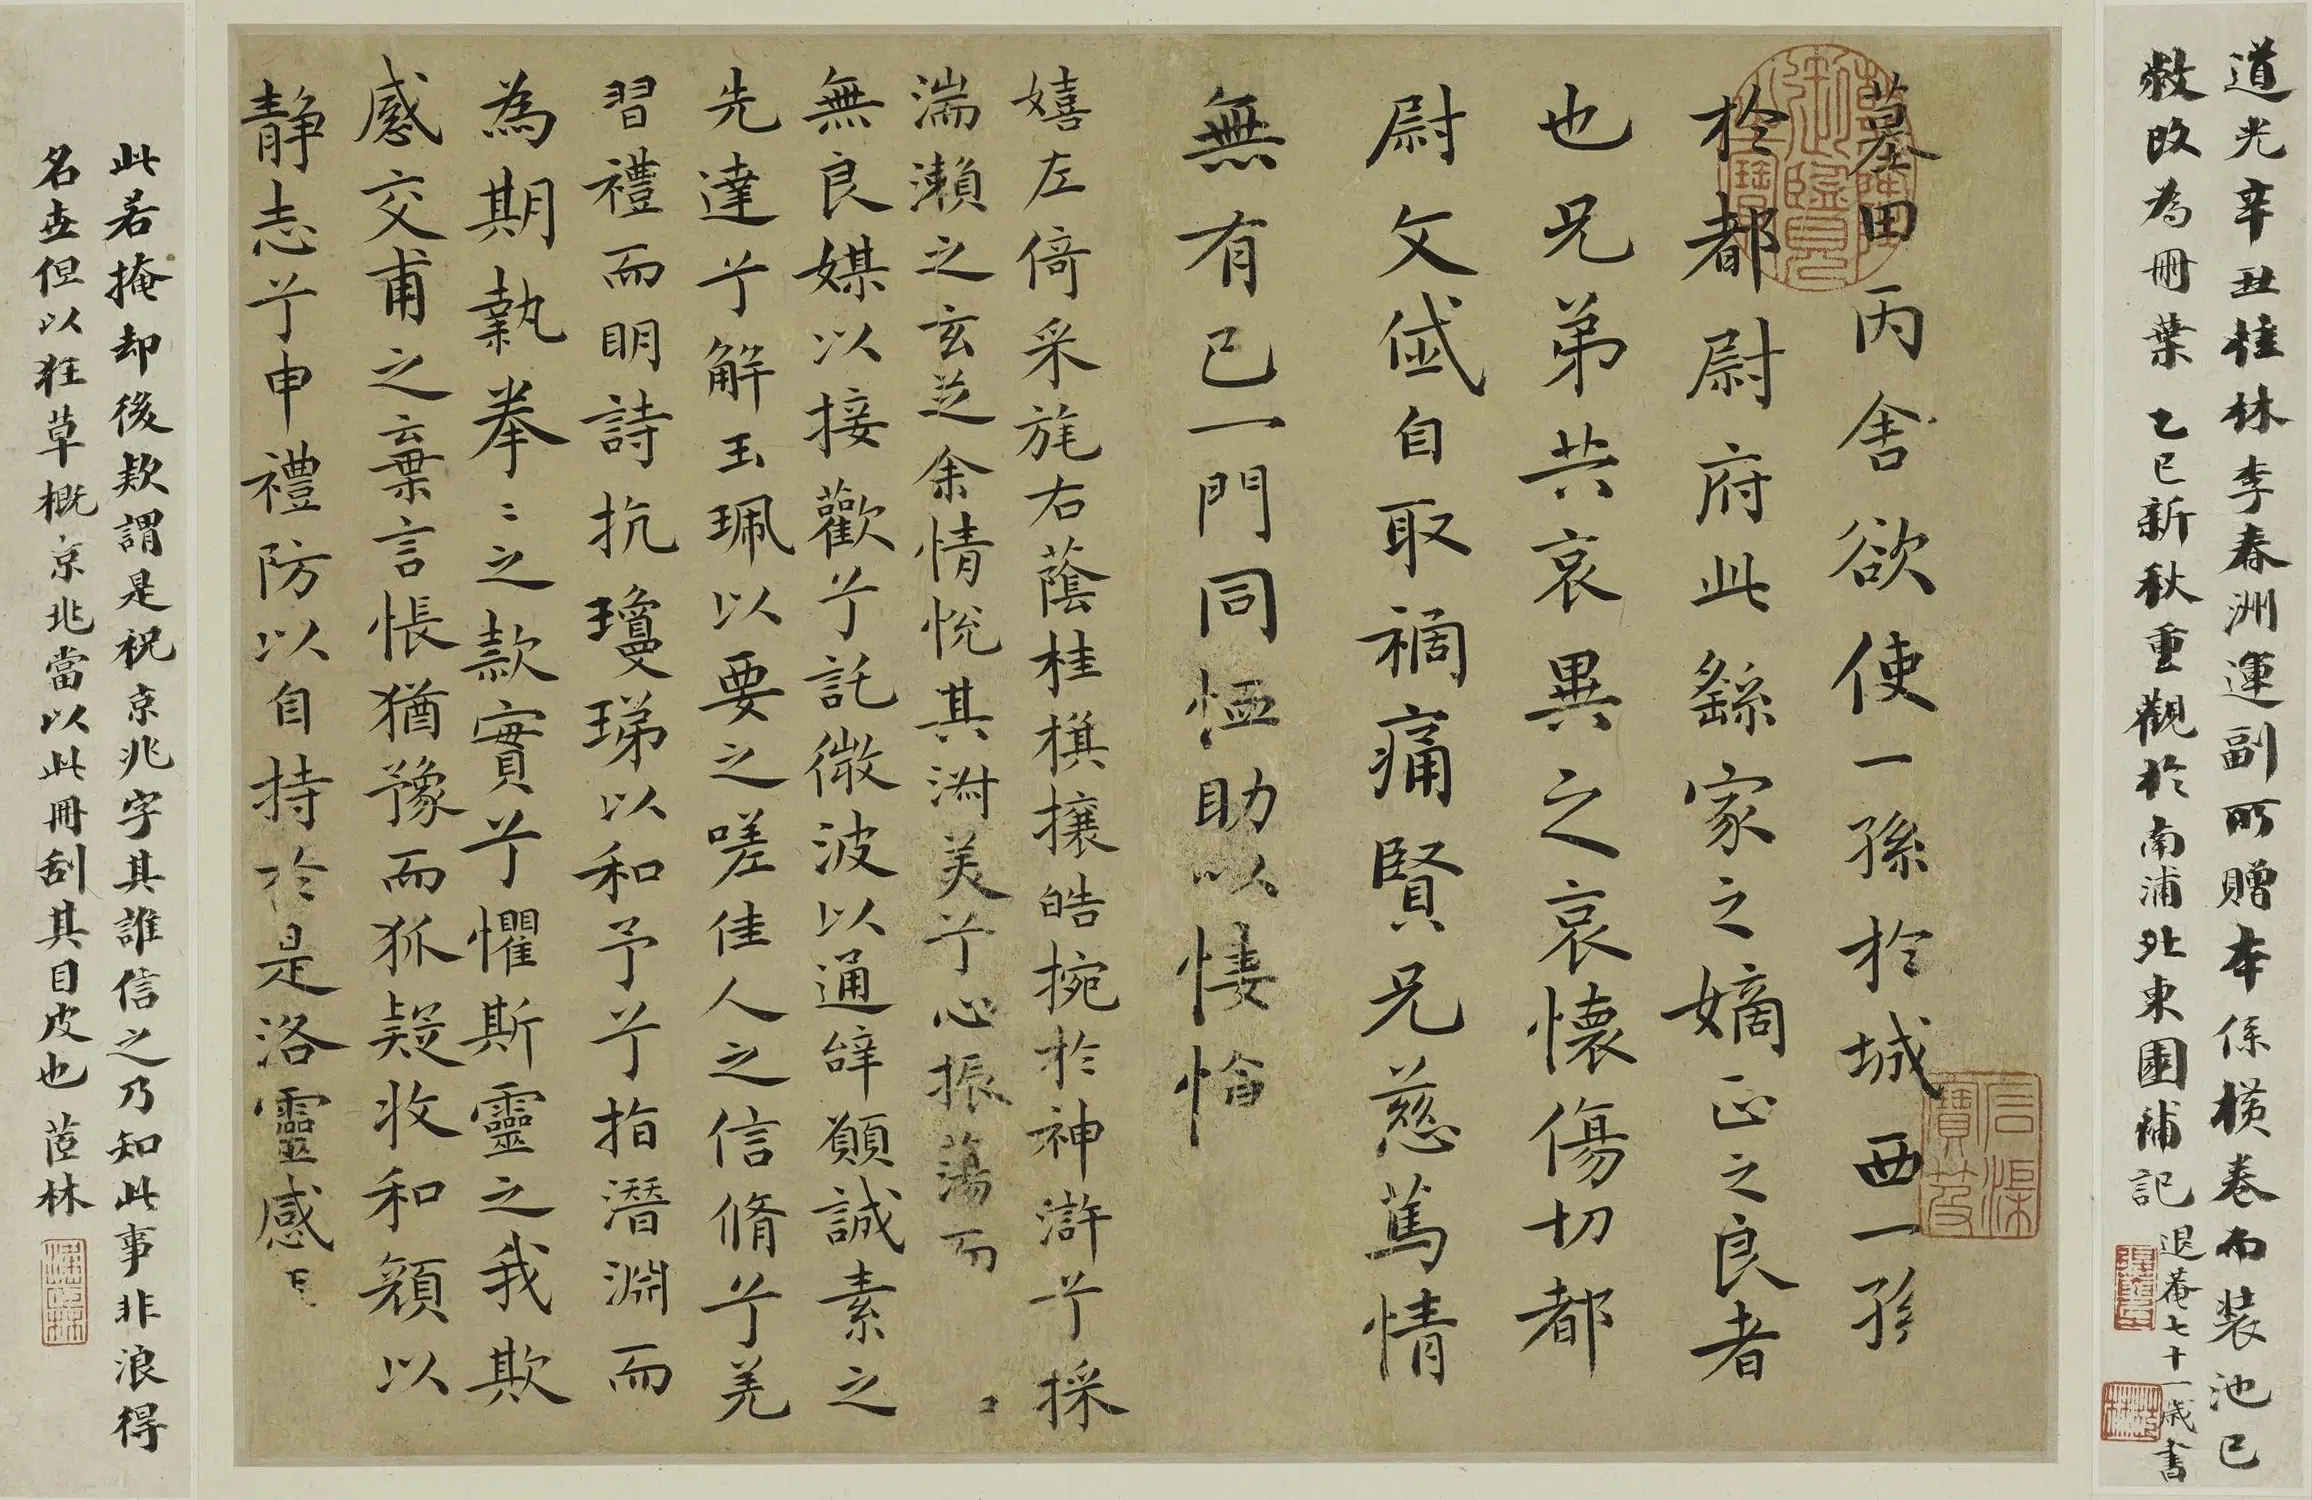 道光辛丑桂林李春洲運副所贈本係橫卷而裝池已
敝改為冊葉乙巳新秋重觀於南浦北東園補記退菴七十一歲書
墓田丙舍欲使一孫於城西一孫
於都尉府此繇家之嫡正之良者
也兄弟共哀異之哀懷傷切都
尉文岱自取禍痛賢兄慈篤情
無有已一門同恤助以悽愴
嬉左倚采旄右蔭桂旗攘皓捥於神滸兮採
湍瀨之玄芝余情悅其淑美兮心振蕩而
無良媒以接歡兮託微波以通辭願誠素之
先達兮解玉珮以要之嗟佳人之信脩兮羌
習禮而明詩抗瓊珶以和予兮指潛淵而
為期執拳〻之款實兮懼斯靈之我欺
感交甫之棄言悵猶豫而狐疑收和顏以
靜志兮申禮防以自持於是洛靈感
此若掩却後款謂是祝京兆字其誰信之乃知此事非浪得
名世但以狂草概京兆當以此冊刮其目皮也茝林